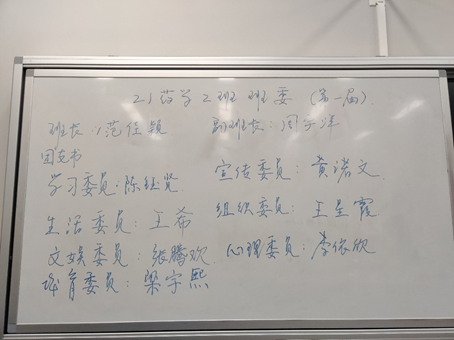 21药学2班 班委 (第一届)
班长:范佳颖 副班长:周子洋
团支书
学习委员·陈钰贤 宣传委员:黄诺文
生活委员:王希 组织委员:王呈霞
文娱委员:张腾欢 心理委员:李依欣
体育委员:梁宇熙